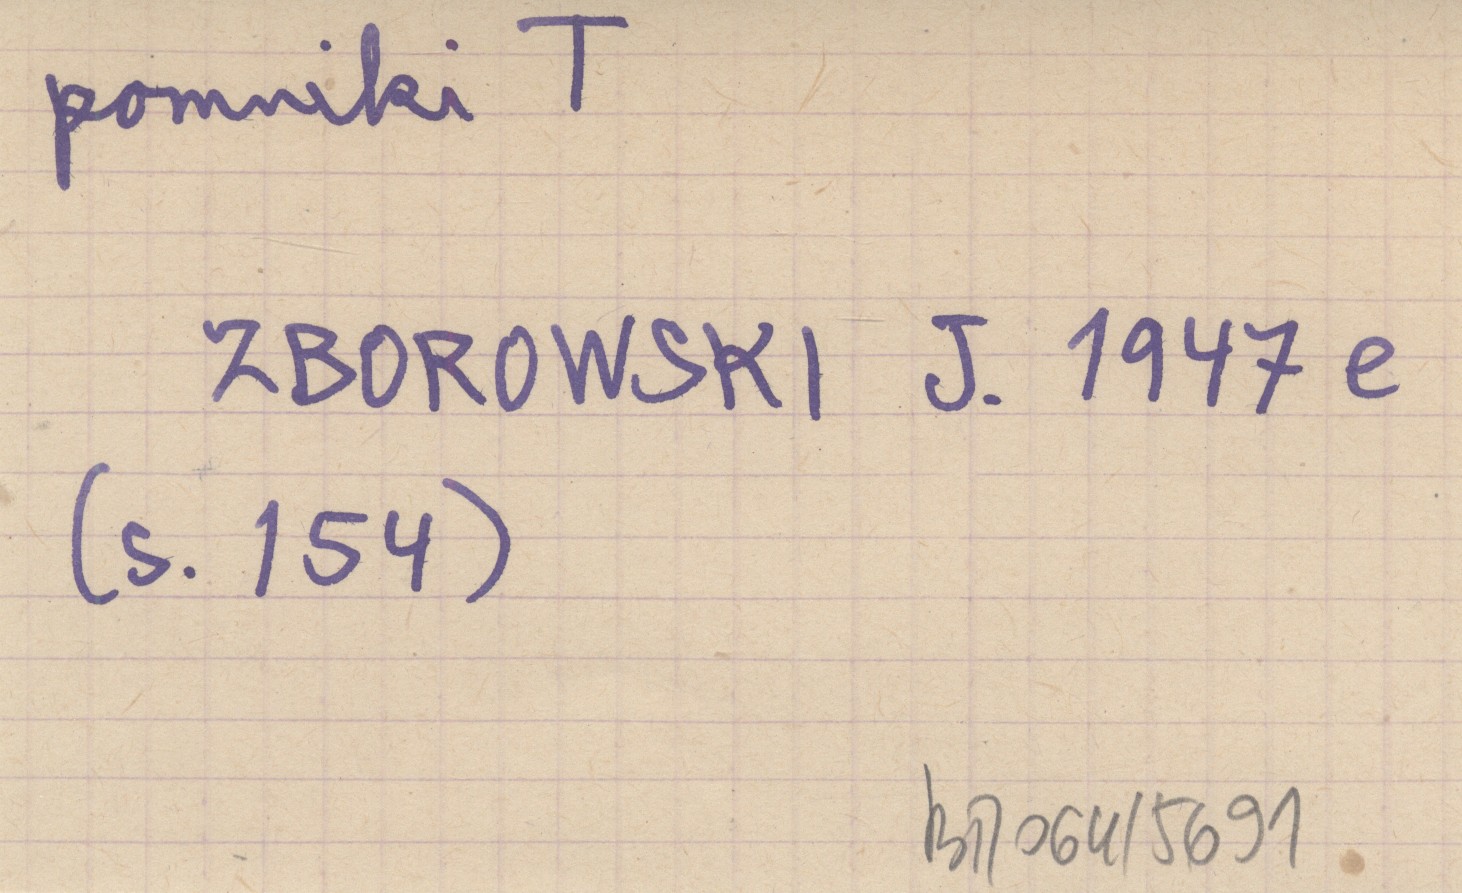 pomniki T
ZBOROWSKI J. 1947 e
(s. 154)
064/5691